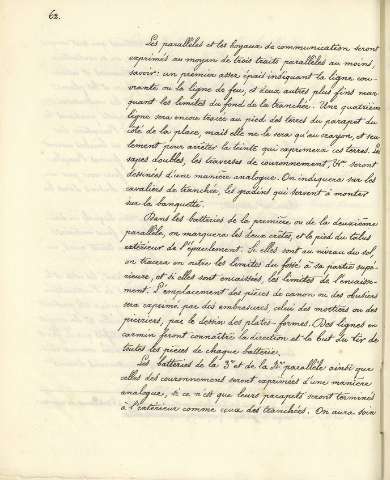 62.
Les parallèles et les boyaux de communication seront
exprimés au moyen de trois traits parallèles au moins,
savoir: un premier assez épais indiquant la ligne cou-
vrante ou la ligne de feu, et deux autres plus fins mar-
quant les limites du fond de la tranchée. Une quatrième
ligne sera encore tracée au pied des terres du parapet du
côté de la place, mais elle ne le sera qu'au crayon, et seu-
lement pour arrêter la teinte qui exprimera ces terres. Les
sapes doubles, les traverses de couronnement, &ª. seront
dessinées d'une manière analogue. On indiquera sur les
cavaliers de tranchée, les gradins qui servent à monter
sur la banquette.
Dans les batteries de la première ou de la deuxième
parallèle, on marquera les deux crêtes, et le pied du talus
extérieur de l'épaulement. Si elles sont au niveau du sol,
on tracera en outre les limites du fossé à sa partie supé-
rieure, et si elles sont encaissées, les limites de l'encaisse-
ment. L'emplacement des pièces de canon ou des obusiers
sera exprimé par des embrasures, celui des mortiers ou des
pierriers, par le dessin des plates-formes. Des lignes en
carmin feront connaître la direction et le but du tir de
toutes les pièces de chaque batterie.
Les batteries de la 3ᵉ et de la 4ᵉ parallèle ainsi que
celles des couronnements seront exprimées d'une manière
analogue, si ce n'est que leurs parapets seront terminés
à l'extérieur comme ceux des tranchées. On aura soin